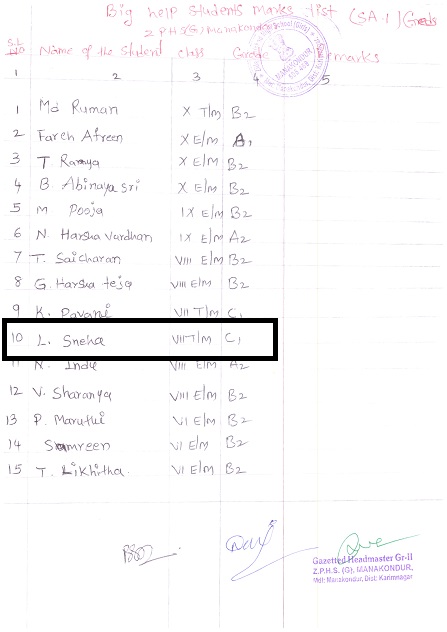 Big help students marks list (SA-1) Grads
Z P H S (G) Manakondur
S.L NO Name of the Student class Grade Remarks
1 2 3 4 5
1 Md Ruman X T/m B2
2 Fareh Afreen X E/m A1
3 T. Ramya X E/m B2
4 B. Abinaya Sri X E/m B2
5 M Pooja IX E/m B2
6 N. Harsha Vardhan IX E/m A2
7 T. Saicharan VIII E/m B2
8 G. Harsha teja VIII E/m B2
9 K. Pavani VII T/m C1
10 L. Sneha VII T/m C1
11 N. Indu VII E/m A2
12 V. Sharanya VIII E/m B2
13 P. Maruthi VI E/m B2
14 Samreen VI E/m B2
15 T. Likhitha. VI E/m B2
Gazetted Headmaster Gr-II
Z.P.H.S. (G). MANAKONDUR,
Mdl: Manakondur, Dist: Karimnagar